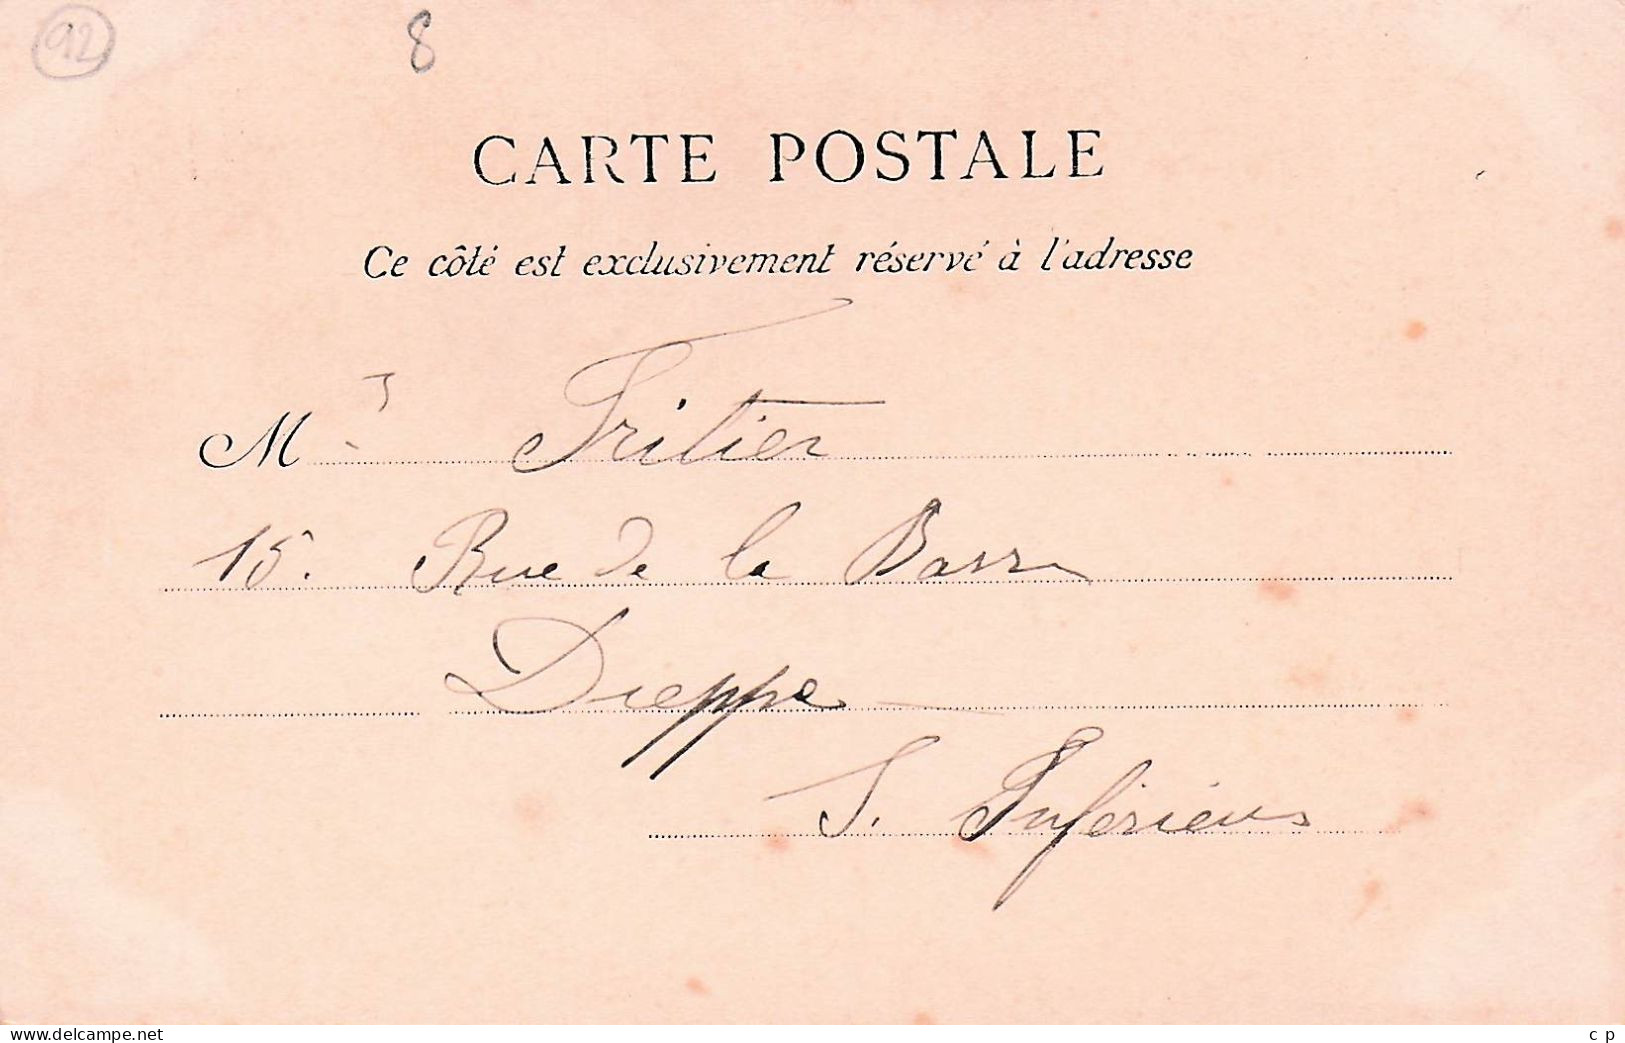 92
8
CARTE POSTALE
Ce côté est exclusivement réservé à l'adresse
M Fritier
15. Rue de la Barre
Dieppe
S. Inférieure
www.delcampe.net
c p